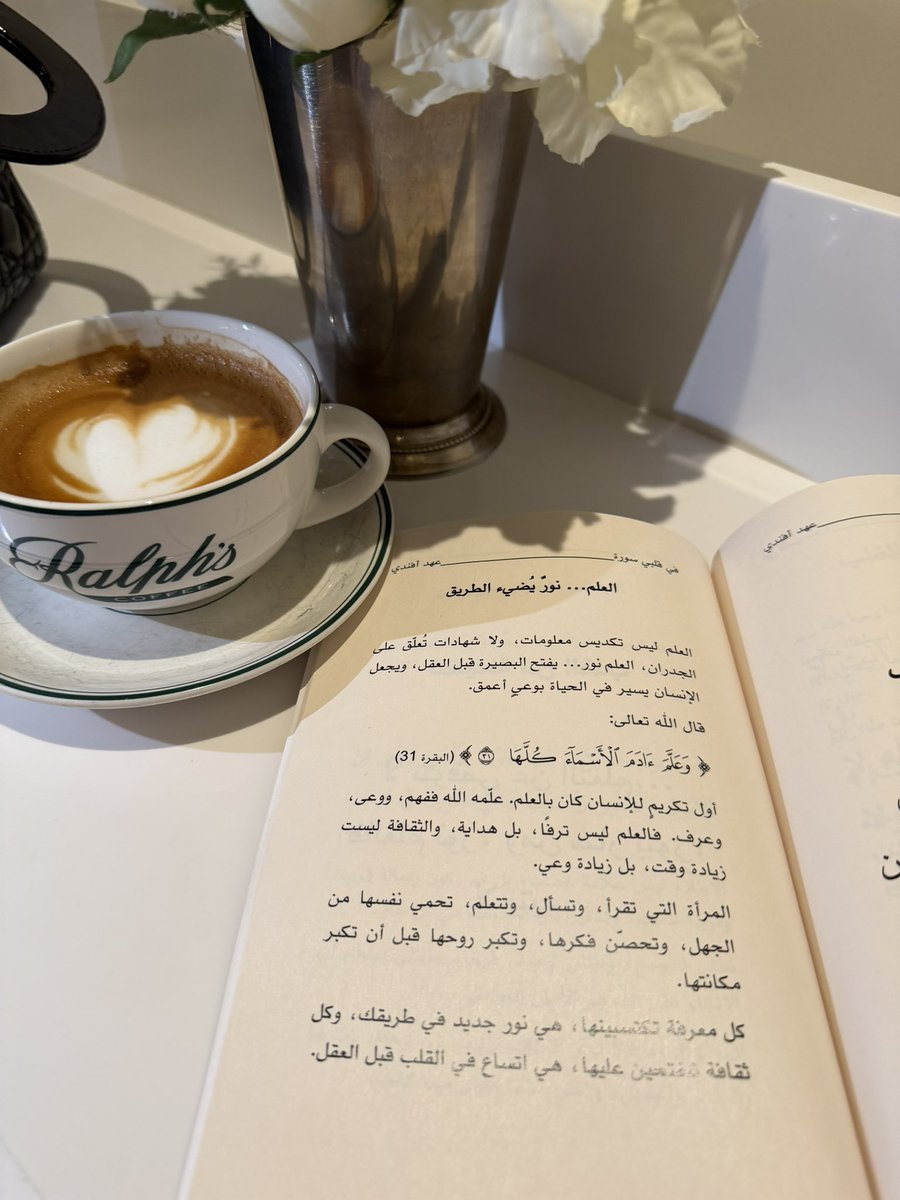 Ralph's
COFFEE
في قلبي سورة عهد أفندي
العلم... نورٌ يُضيء الطريق
العلم ليس تكديس معلومات، ولا شهادات تُعلّق على
الجدران، العلم نور... يفتح البصيرة قبل العقل، ويجعل
الإنسان يسير في الحياة بوعيٍ أعمق.
قال الله تعالى:
﴿ وَعَلَّمَ ءَادَمَ ٱلْأَسْمَآءَ كُلَّهَا ٣١ ﴾ (البقرة 31)
أول تكريمٍ للإنسان كان بالعلم. علّمه الله ففهم، ووعى،
وعرف. فالعلم ليس ترفًا، بل هداية، والثقافة ليست
زيادة وقت، بل زيادة وعي.
المرأة التي تقرأ، وتسأل، وتتعلم، تحمي نفسها من
الجهل، وتحصّن فكرها، وتكبر روحها قبل أن تكبر
مكانتها.
كل معرفة تكتسبينها، هي نور جديد في طريقك، وكل
ثقافة تنفتحين عليها، هي اتساع في القلب قبل العقل.
عهد أفندي
ن